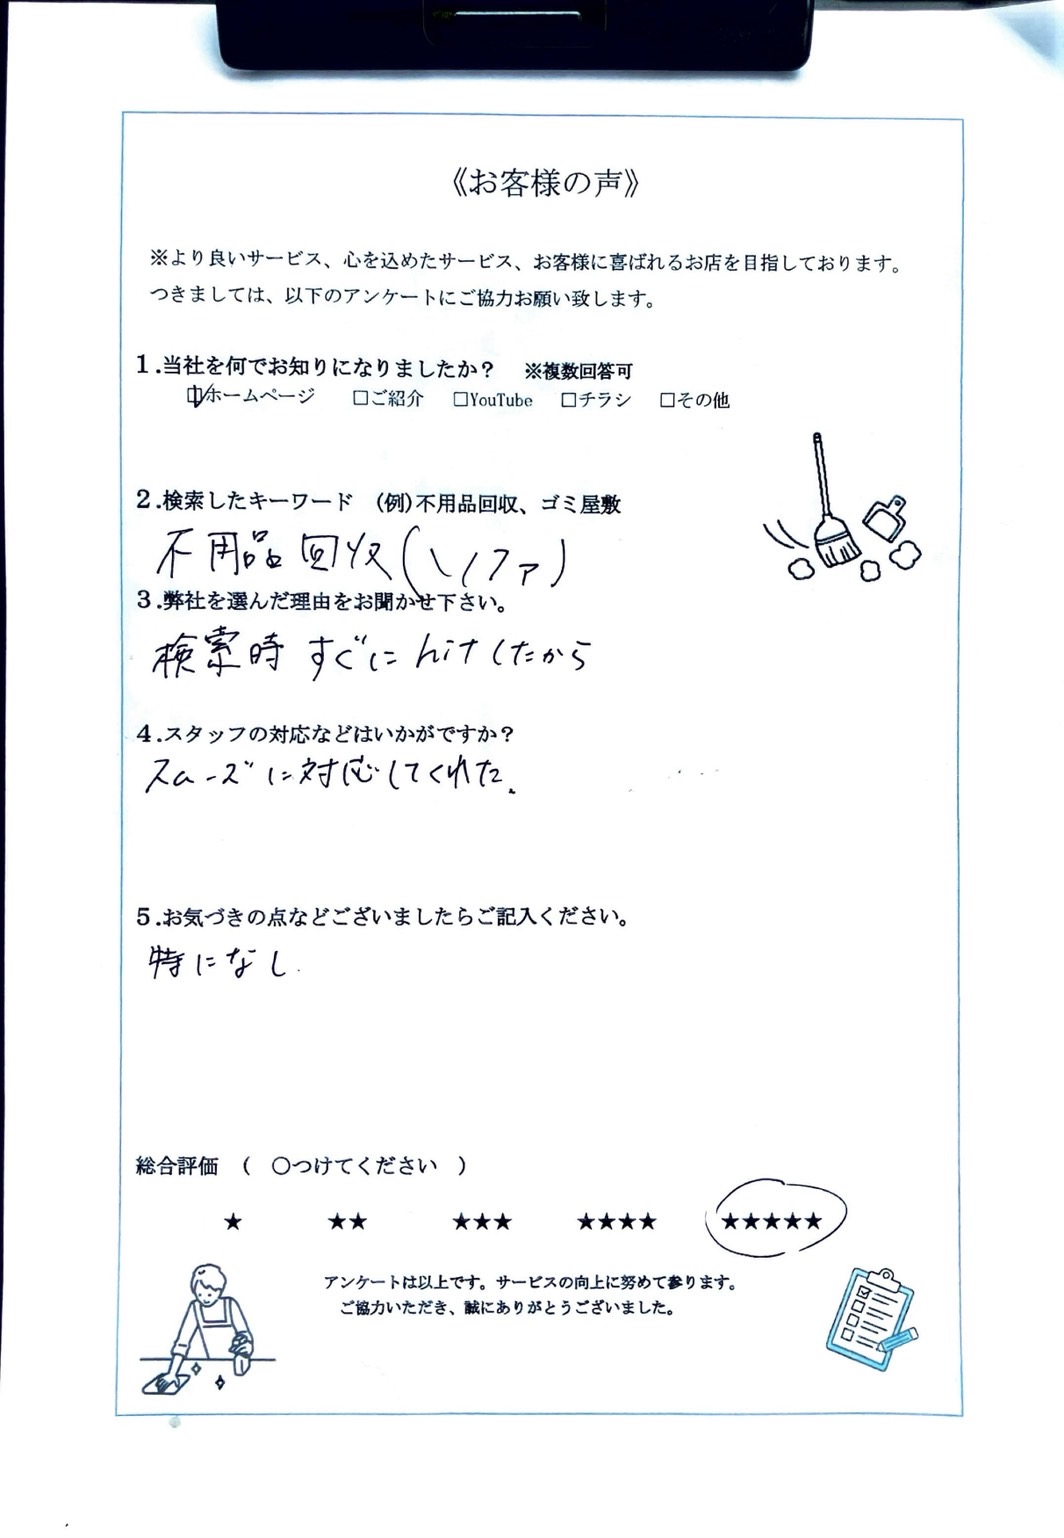 《お客様の声》
※より良いサービス、心を込めたサービス、お客様に喜ばれるお店を目指しております。
つきましては、以下のアンケートにご協力お願い致します。
1.当社を何でお知りになりましたか？ ※複数回答可
☑ホームページ □ご紹介 □YouTube □チラシ □その他
2.検索したキーワード (例)不用品回収、ゴミ屋敷
不用品回収(ソファ)
3.弊社を選んだ理由をお聞かせ下さい。
検索時すぐにhitしたから
4.スタッフの対応などはいかがですか？
スムーズに対応してくれた。
5.お気づきの点などございましたらご記入ください。
特になし
総合評価 ( ○つけてください )
★ ★★ ★★★ ★★★★ ★★★★★
アンケートは以上です。サービスの向上に努めて参ります。
ご協力いただき、誠にありがとうございました。